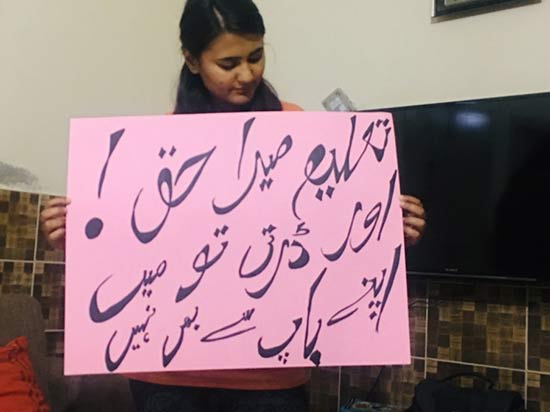 تعلیم میرا حق !
اور ڈرتی تو میں
اپنے باپ سے بھی نہیں